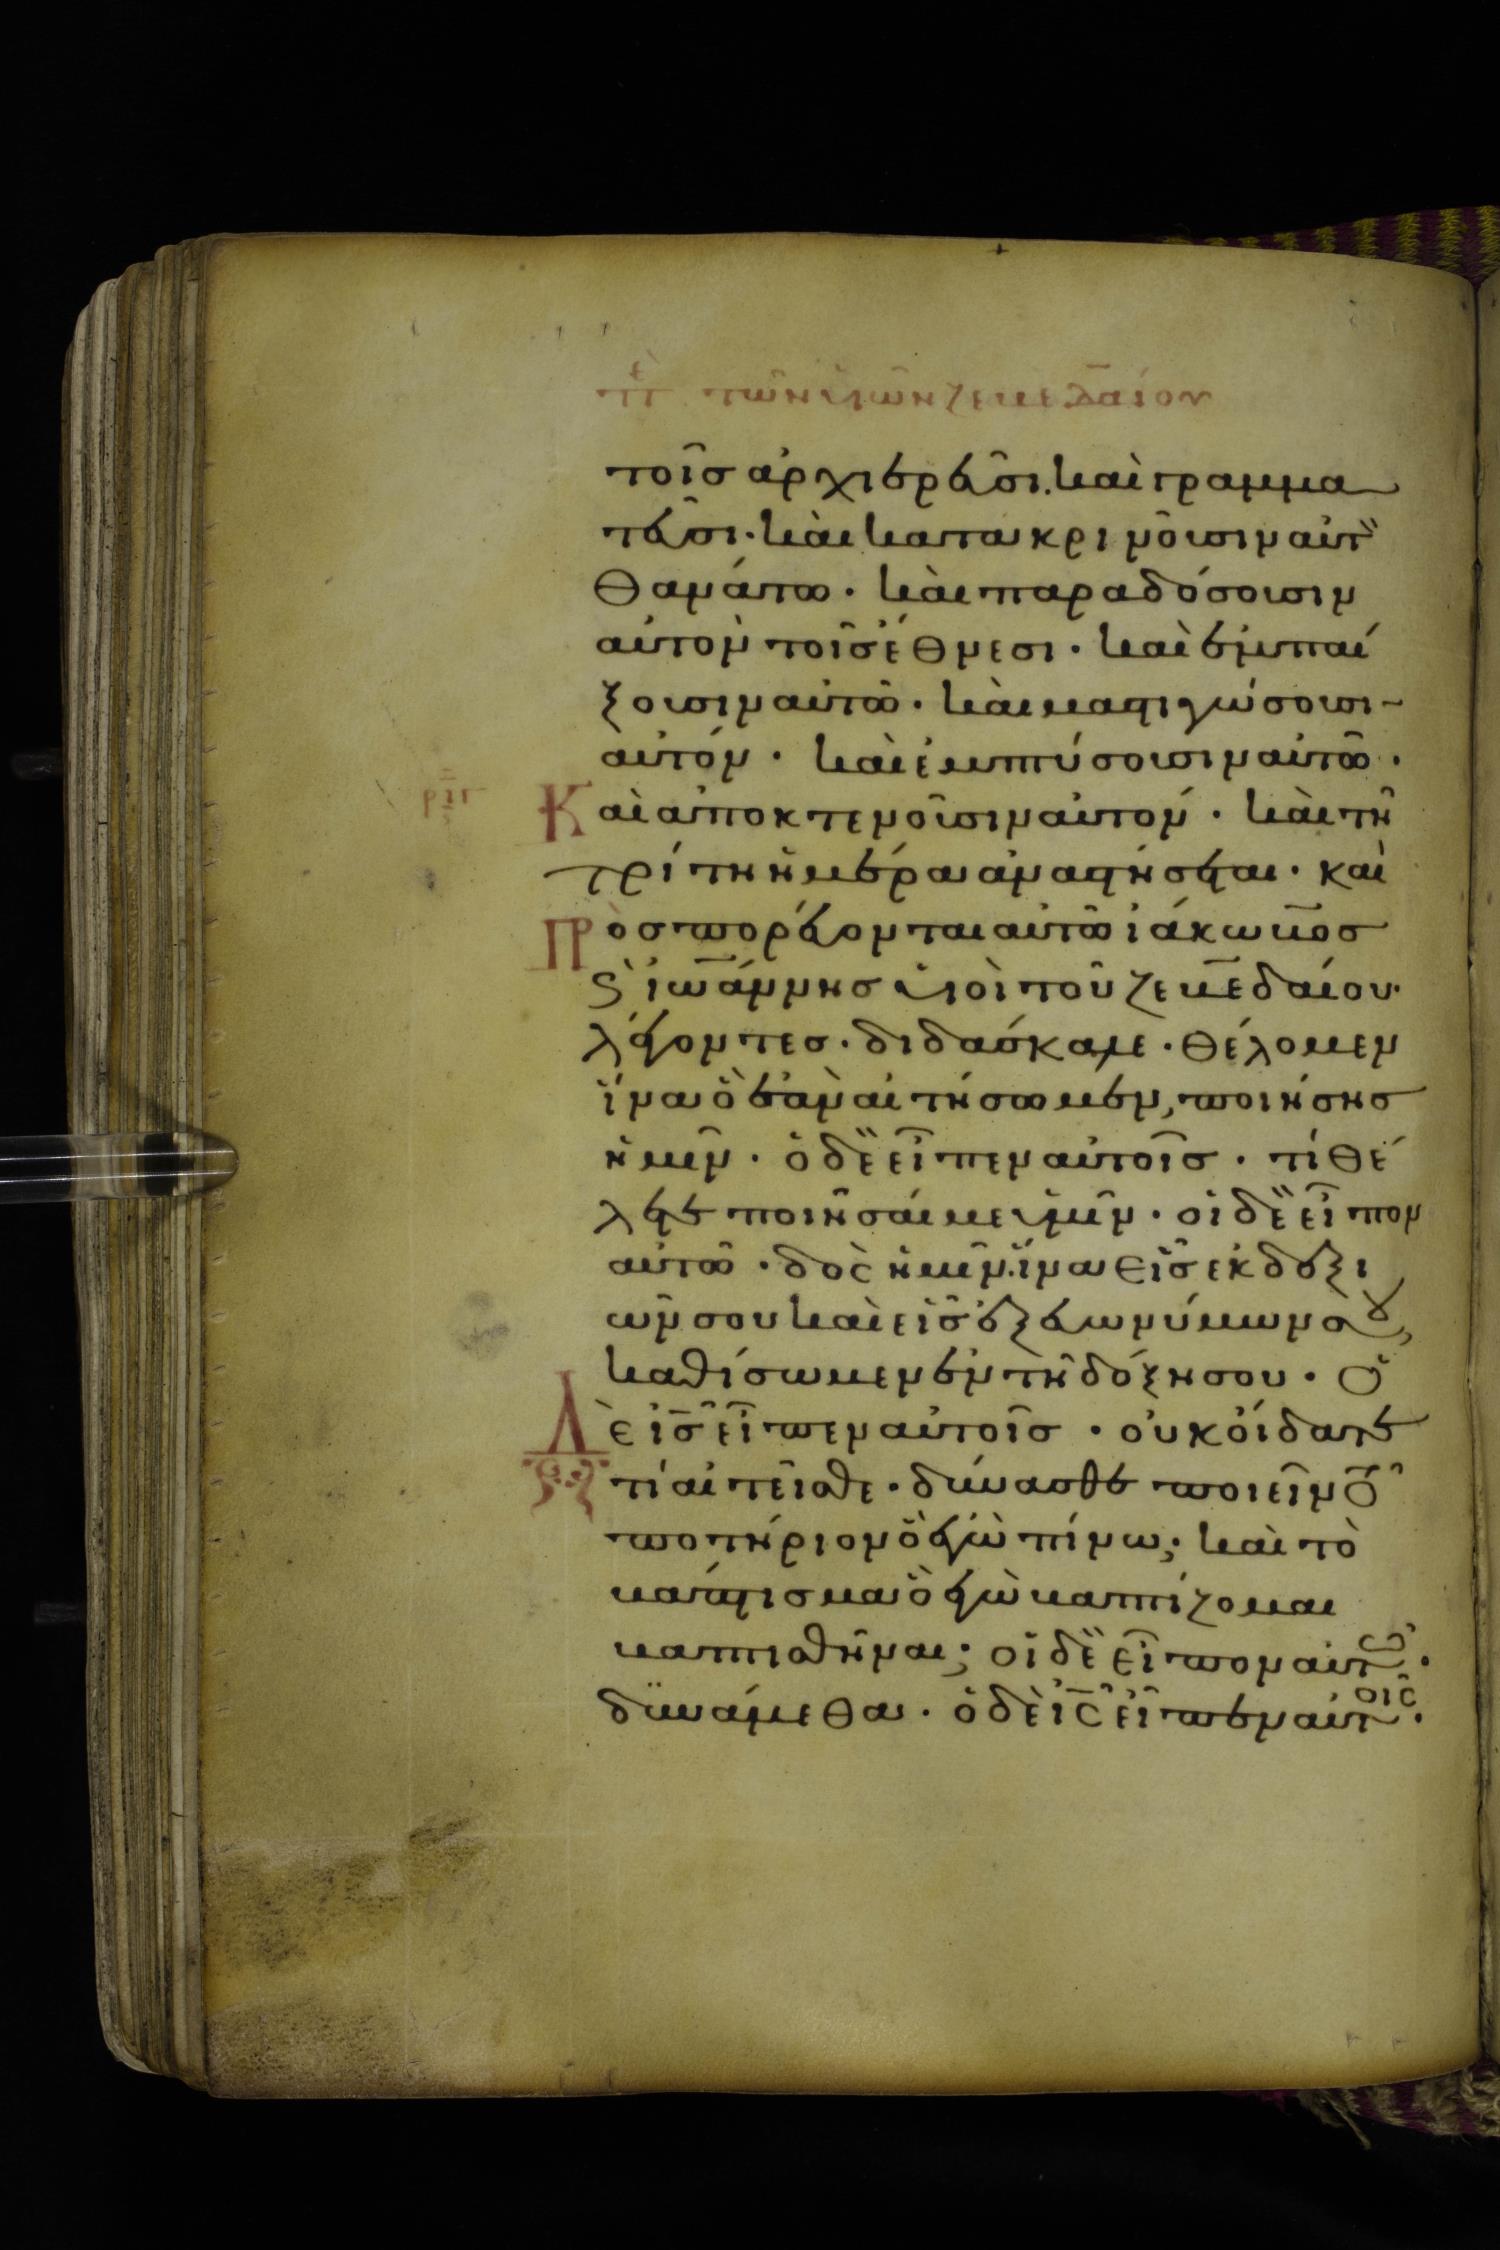 πε τῶν υἱῶν ζεβεδαίου
τοῖς ἀρχιερεῦσι. καὶ γραμμα
τεῦσι· καὶ κατακρινοῦσιν αὐτὸ
θανάτω· καὶ παραδόσουσιν
αὐτὸν τοῖς ἔθνεσι· καὶ ἐμπαί
ξουσιν αὐτῶ· καὶ μαστιγώσουσι
αὐτόν· καὶ ἐμπτύσουσιν αὐτῶ·
Καὶ ἀποκτενοῦσιν αὐτόν· καὶ τῆ
τρίτη ἡμέρα ἀναστήσεται· καὶ
Πρὸσπορεύονται αὐτῶ ἰάκωβος
ϗ ἰωάννης υἱοὶ τοῦ ζεβεδαίου·
λέγοντες· διδάσκαλε· θέλομεν
ἵνα ὃ ἐὰν αἰτήσωμεν, ποιήσης
ἡμῖν· ὁ δὲ εἶπεν αὐτοῖς· τί θέ
λετε ποιῆσαί με ὑμῖν· οἱ δὲ εἶπον
αὐτῶ· δὸς ἡμῖν. ἵνα εἷς ἐκ δεξι
ῶν σου καὶ εἷς ἐξ εὐωνύμων σου,
καθίσωμεν ἐν τῆ δόξη σου· Ὁ
Δὲ ις εἶπεν αὐτοῖς· οὐκ οἴδατε
τί αἰτεῖσθε· δύνασθε ποιεῖν τὸ
ποτήριον ὃ ἐγὼ πίνω; καὶ τὸ
βάπτισμα ὃ ἐγὼ βαπτίζομαι
βαπτισθῆναι; οἱ δὲ εἶπον αὐτῶ·
δυνάμεθα· ὁ δὲ ις εἶπεν αὐτοῖς·